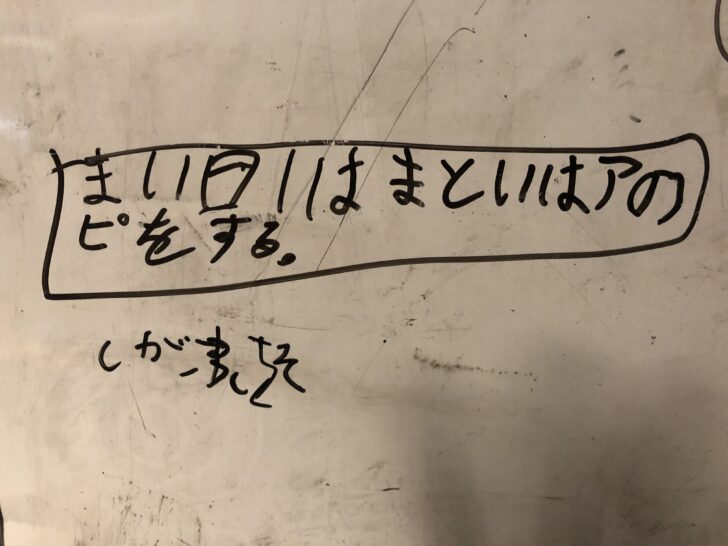 まい日いはまといはアの
ピをする。
しが書